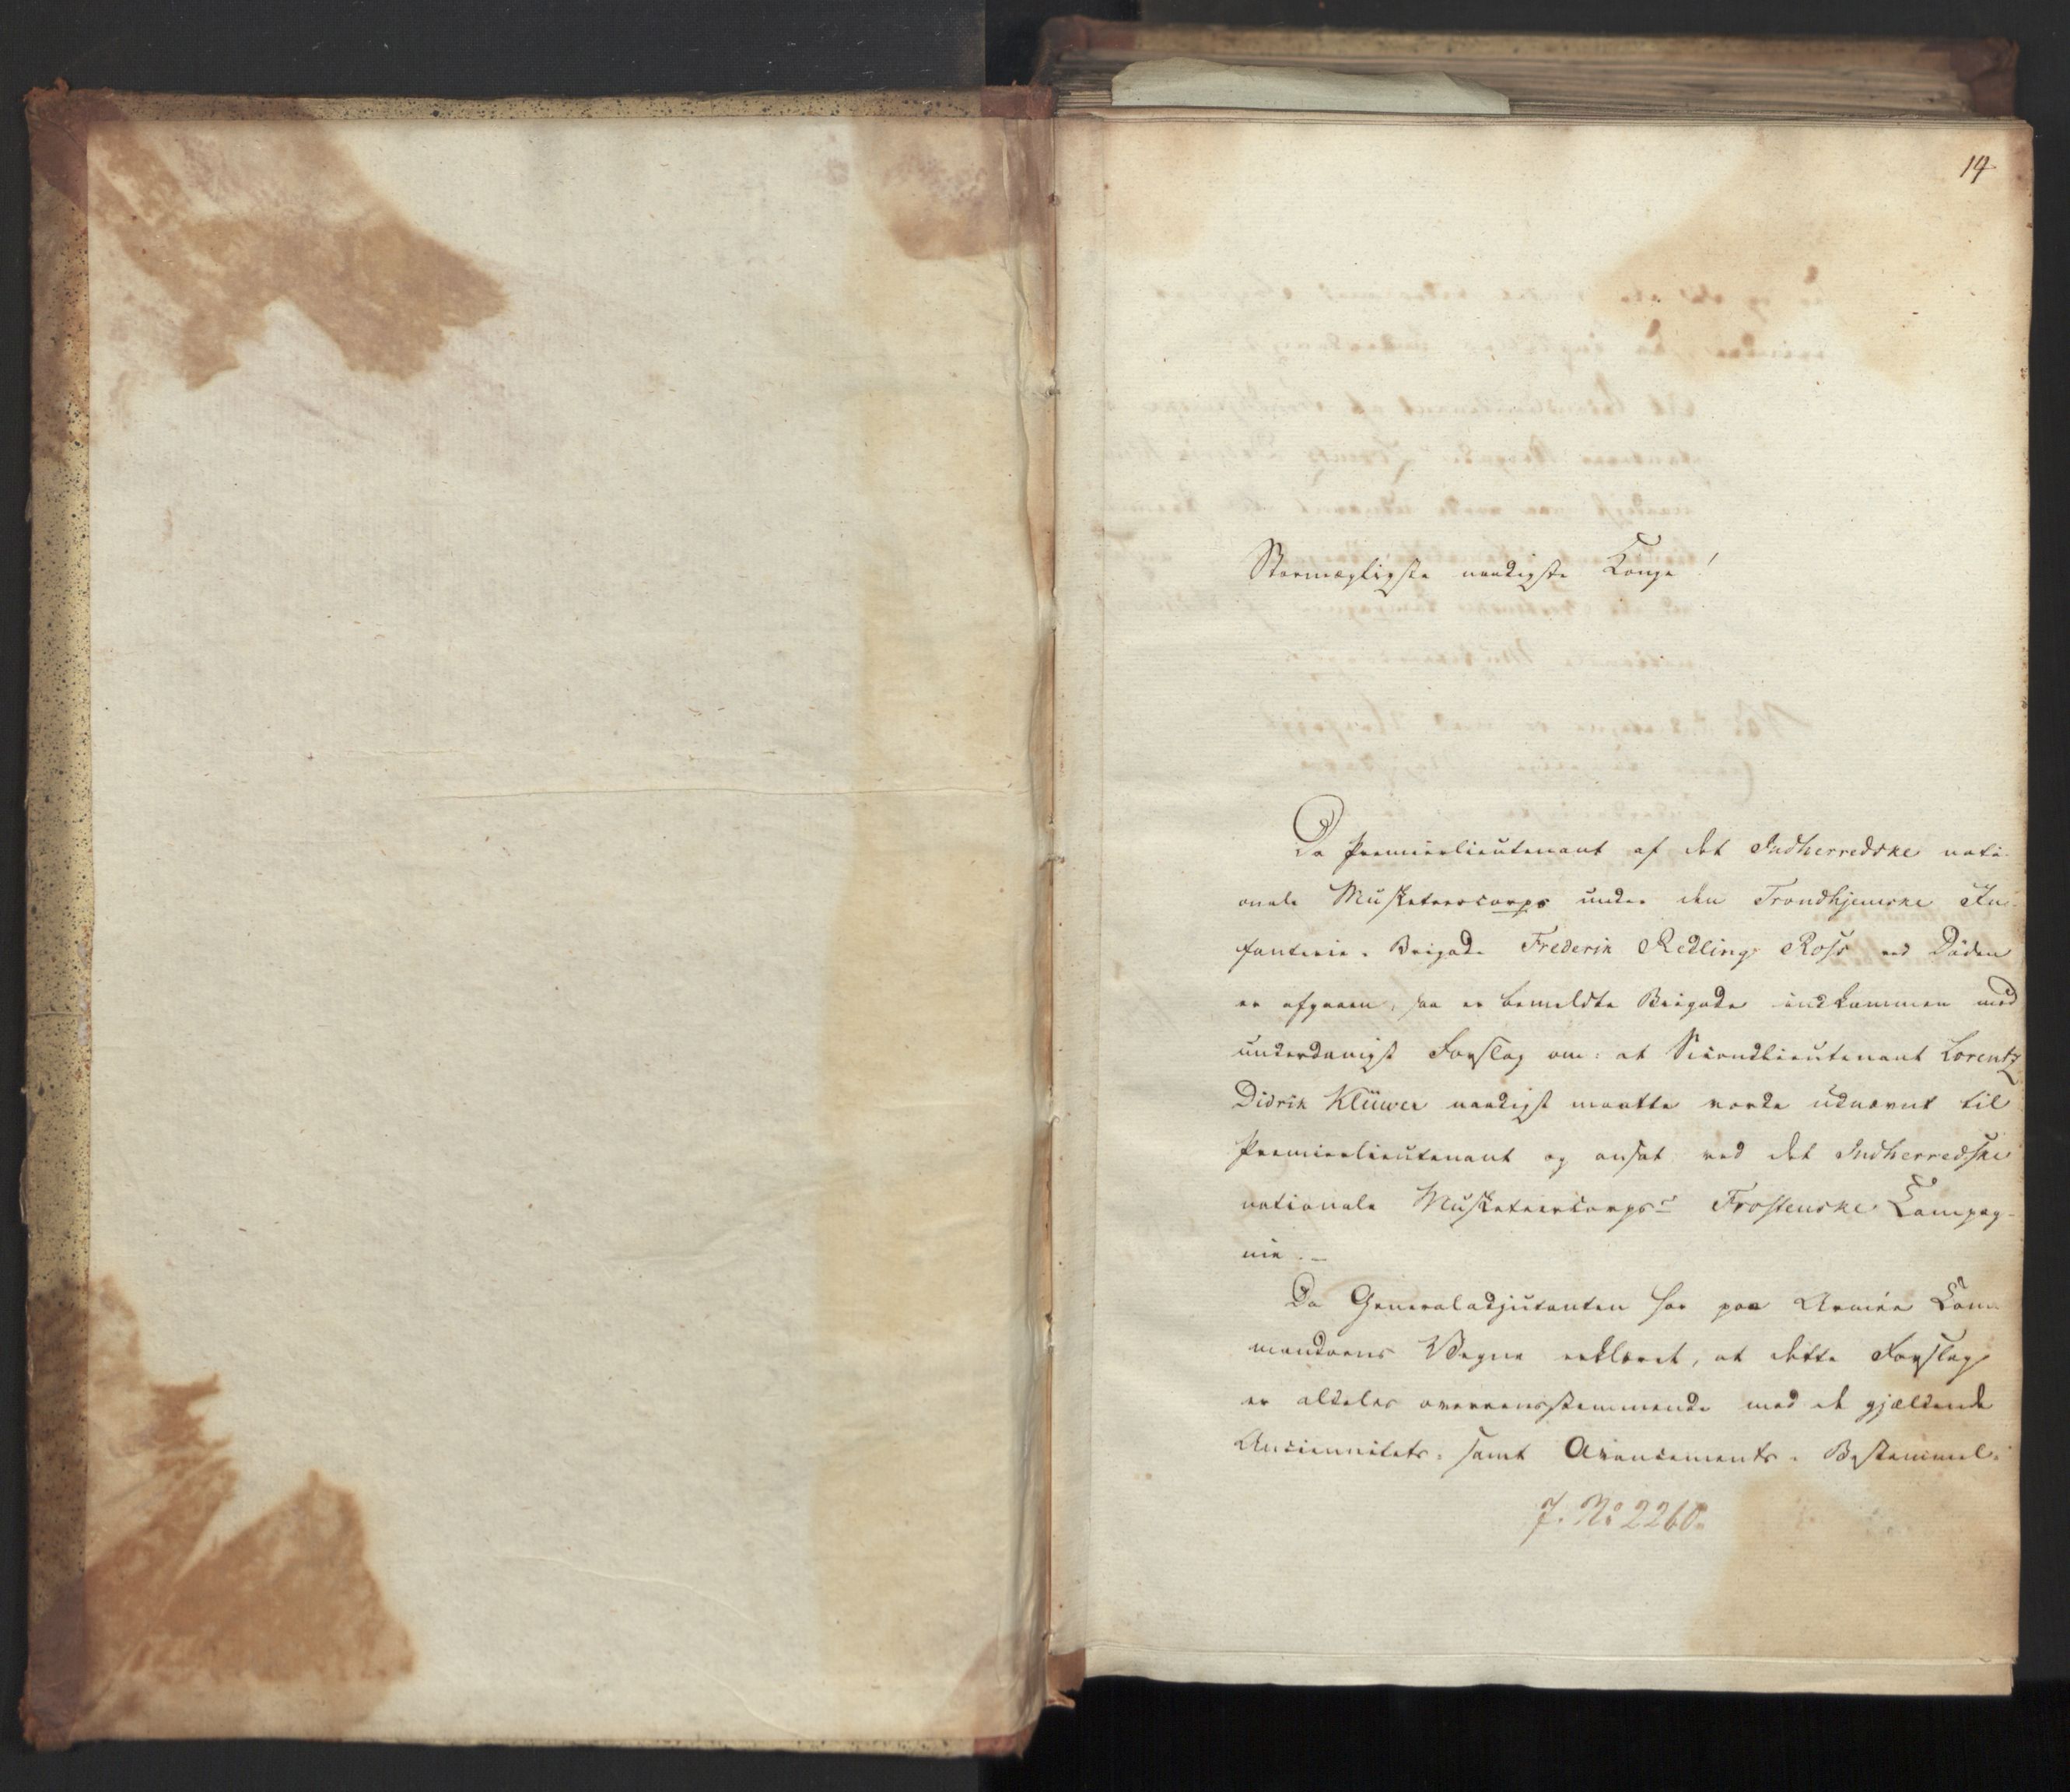 14
Stormægtigste naadigste Konge!
Da Premierlieutenant af det Indherredske nati-
onale Musketeercorps under den Trondhjemske In-
fanterie-Brigade Frederik Redling Ross ved Döden
er afgaaen, saa er bemeldte Brigade indkommen med
underdanigst Forslag om: at Secondlieutenant Lorentz
Didrik Klüwer naadigst maatte vorde udnævnt til
Premierlieutenant og ansat ved det Indherredske
nationale Musketeercorps's Frostenske Compag-
nie.-
Da Generaladjutanten har paa Armée Com-
mandoens Vegne erklæret, at dette Forslag
er aldeles overeensstemmende med de gjældende
Anciennitets- samt Avancements-Bestemmel-
J. No 2260.